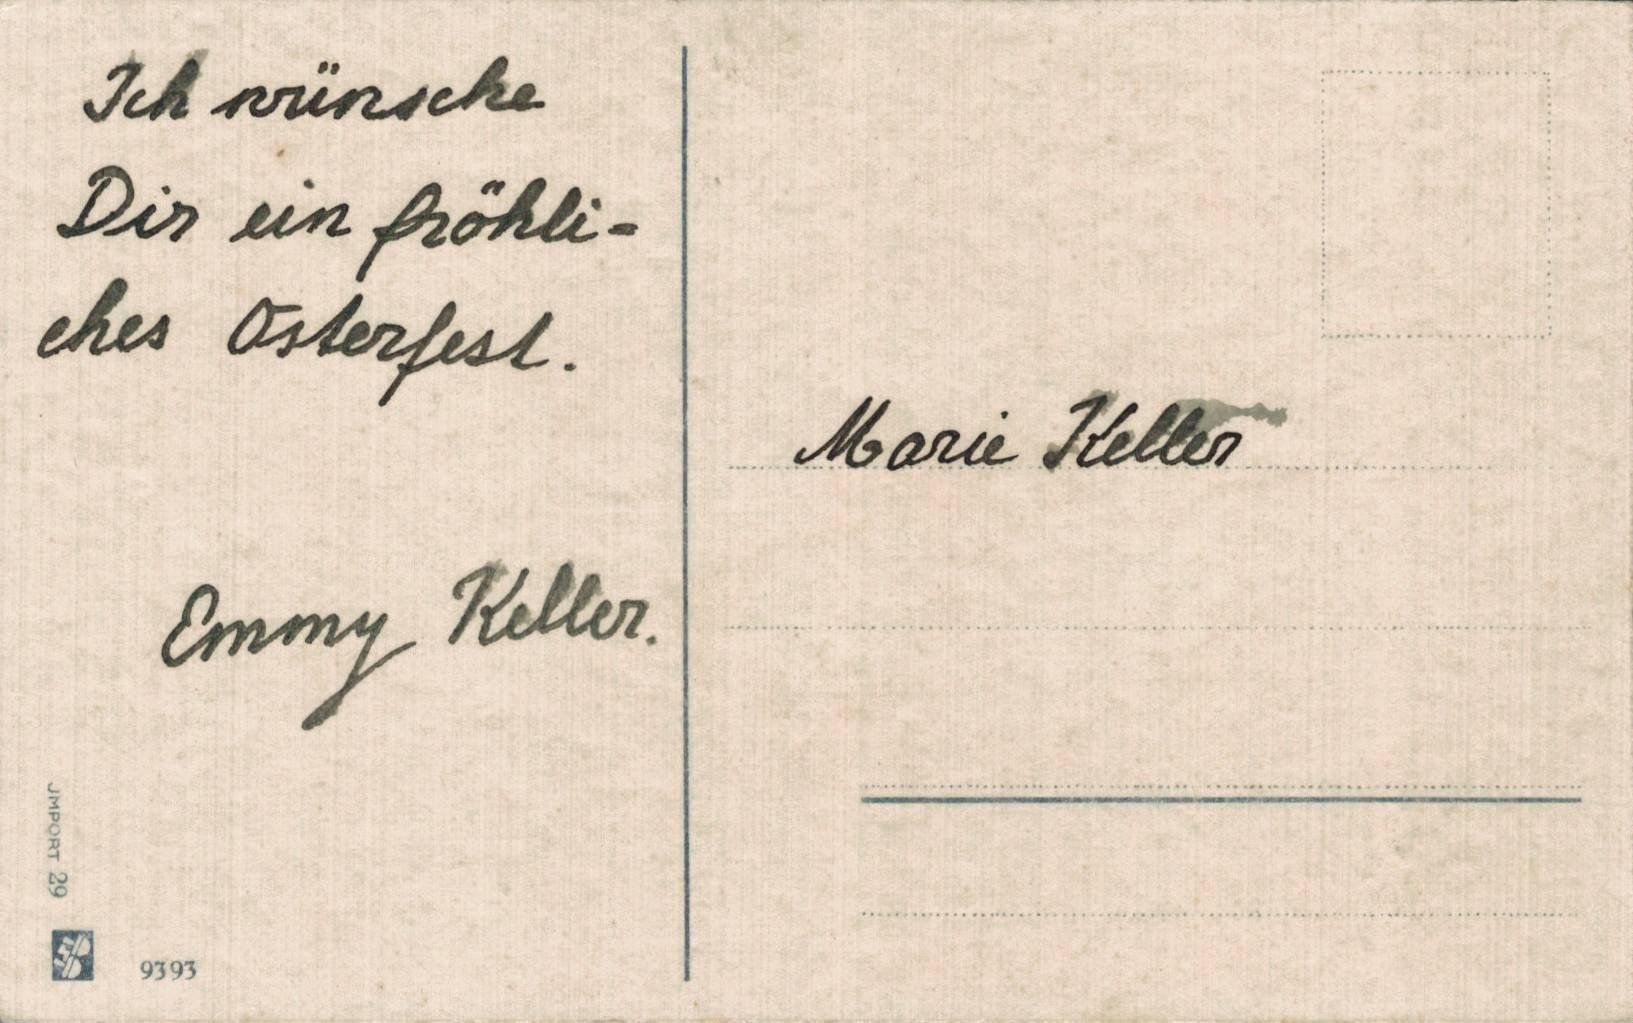 Ich wünsche
Dir ein fröhli=
ches Osterfest.
Emmy Keller.
Marie Keller
JMPORT 29
9393